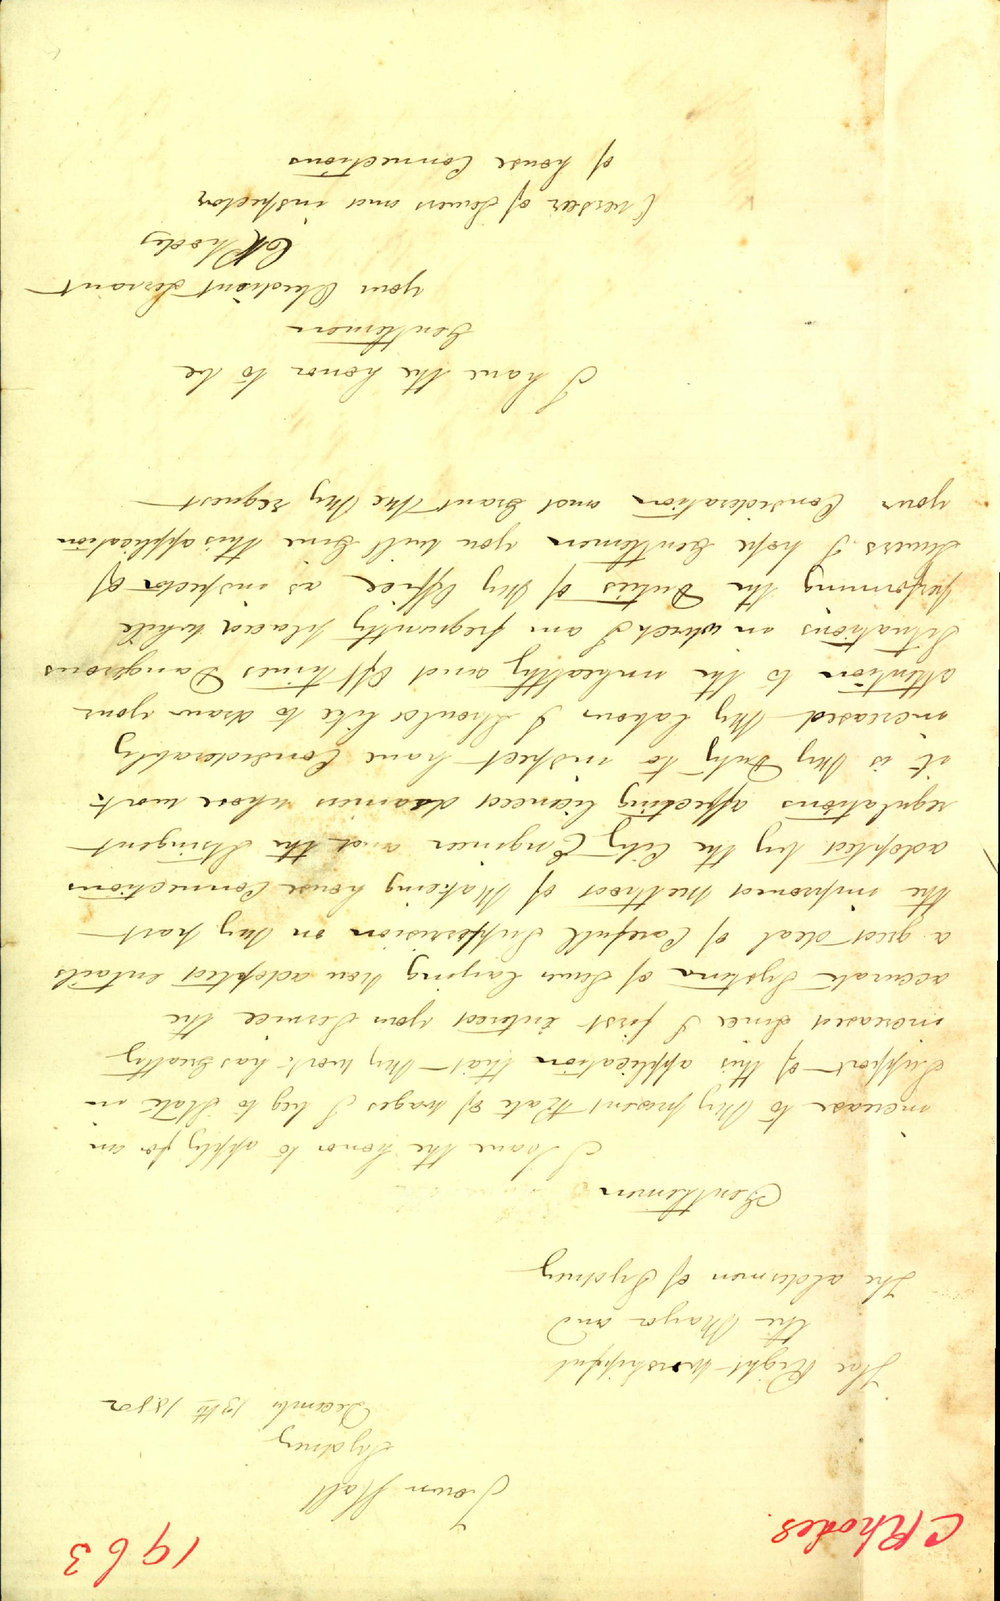 C Rhodes.
1963
Town Hall
Sydney
December 19th 1882
The Right Worshipful
the Mayor and
The aldermen of Sydney
Gentlemen
I have the honor to apply for an
increase to My present Rate of Wages I beg to State in
Support of this application that My work has Greatly
increased Since I first entered your Service the
accurate System of Sewer laying now adopted entails
a great deal of Carefull Suppervision on My part
the improved Method of Making house Connections
adopted by the City Engineer and the Stringent
regulations affecting licenced drainers whose work
it is My Duty to inspect have Considerably
increased My labour I should like to draw your
attention to the unhealthy and Oft times Dangerous
Situations in which I am frequently placed while
performing the Duties of My Office as inspector of
Sewers I hope Gentlemen you will Give this application
your Consideration and Grant Me My request
I have the honor to be
Gentlemen
your Obedient Servant
C Rhodes
Overseer of Sewers and inspector
of house Connections